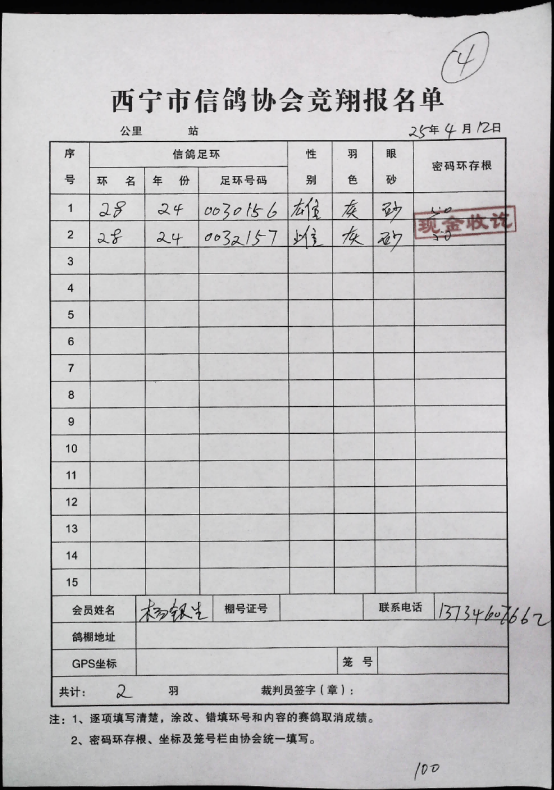 4
西宁市信鸽协会竞翔报名单
公里 站 25年4月12日
序号 信鸽足环 性别 羽色 眼砂 密码环存根
环名 年份 足环号码
1 28 24 0030156 雄 灰 砂 50
2 28 24 0032157 雌 灰 砂 50
现金收讫
3
4
5
6
7
8
9
10
11
12
13
14
15
会员姓名 杨银生 棚号证号 联系电话
鸽棚地址
GPS坐标 笼号
共计： 2 羽 裁判员签字（章）：
注：1、逐项填写清楚，涂改、错填环号和内容的赛鸽取消成绩。
2、密码环存根、坐标及笼号栏由协会统一填写。
100